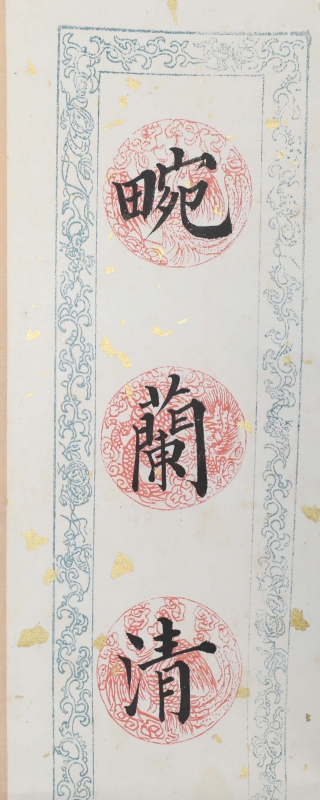 畹蘭清